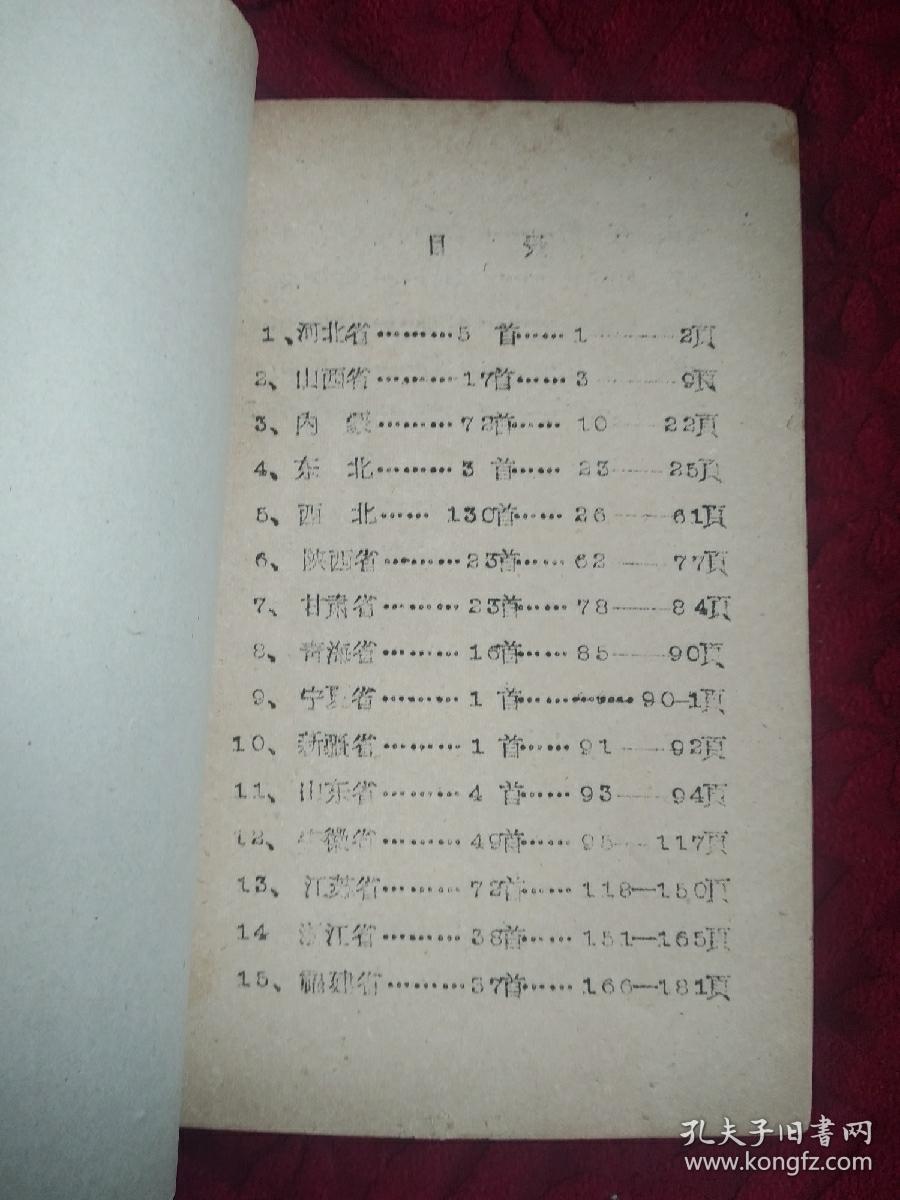 目 录
1、河北省………5 首……1———2頁
2、山西省………17首……3———9頁
3、内 蒙………72首……10——22頁
4、东 北………3 首……23——25頁
5、西 北…… 130首……26——61頁
6、陕西省………23首……62——77頁
7、甘肃省………23首……78——84頁
8、青海省………16首……85——90頁
9、宁夏省………1 首…………90-1頁
10、新疆省………1 首……91——92頁
11、山东省………4 首……93——94頁
12、安徽省………49首……95—117頁
13、江苏省………72首……118—150頁
14 浙江省………38首……151—165頁
15、福建省………37首……166—181頁
孔夫子旧書网
www.kongfz.com